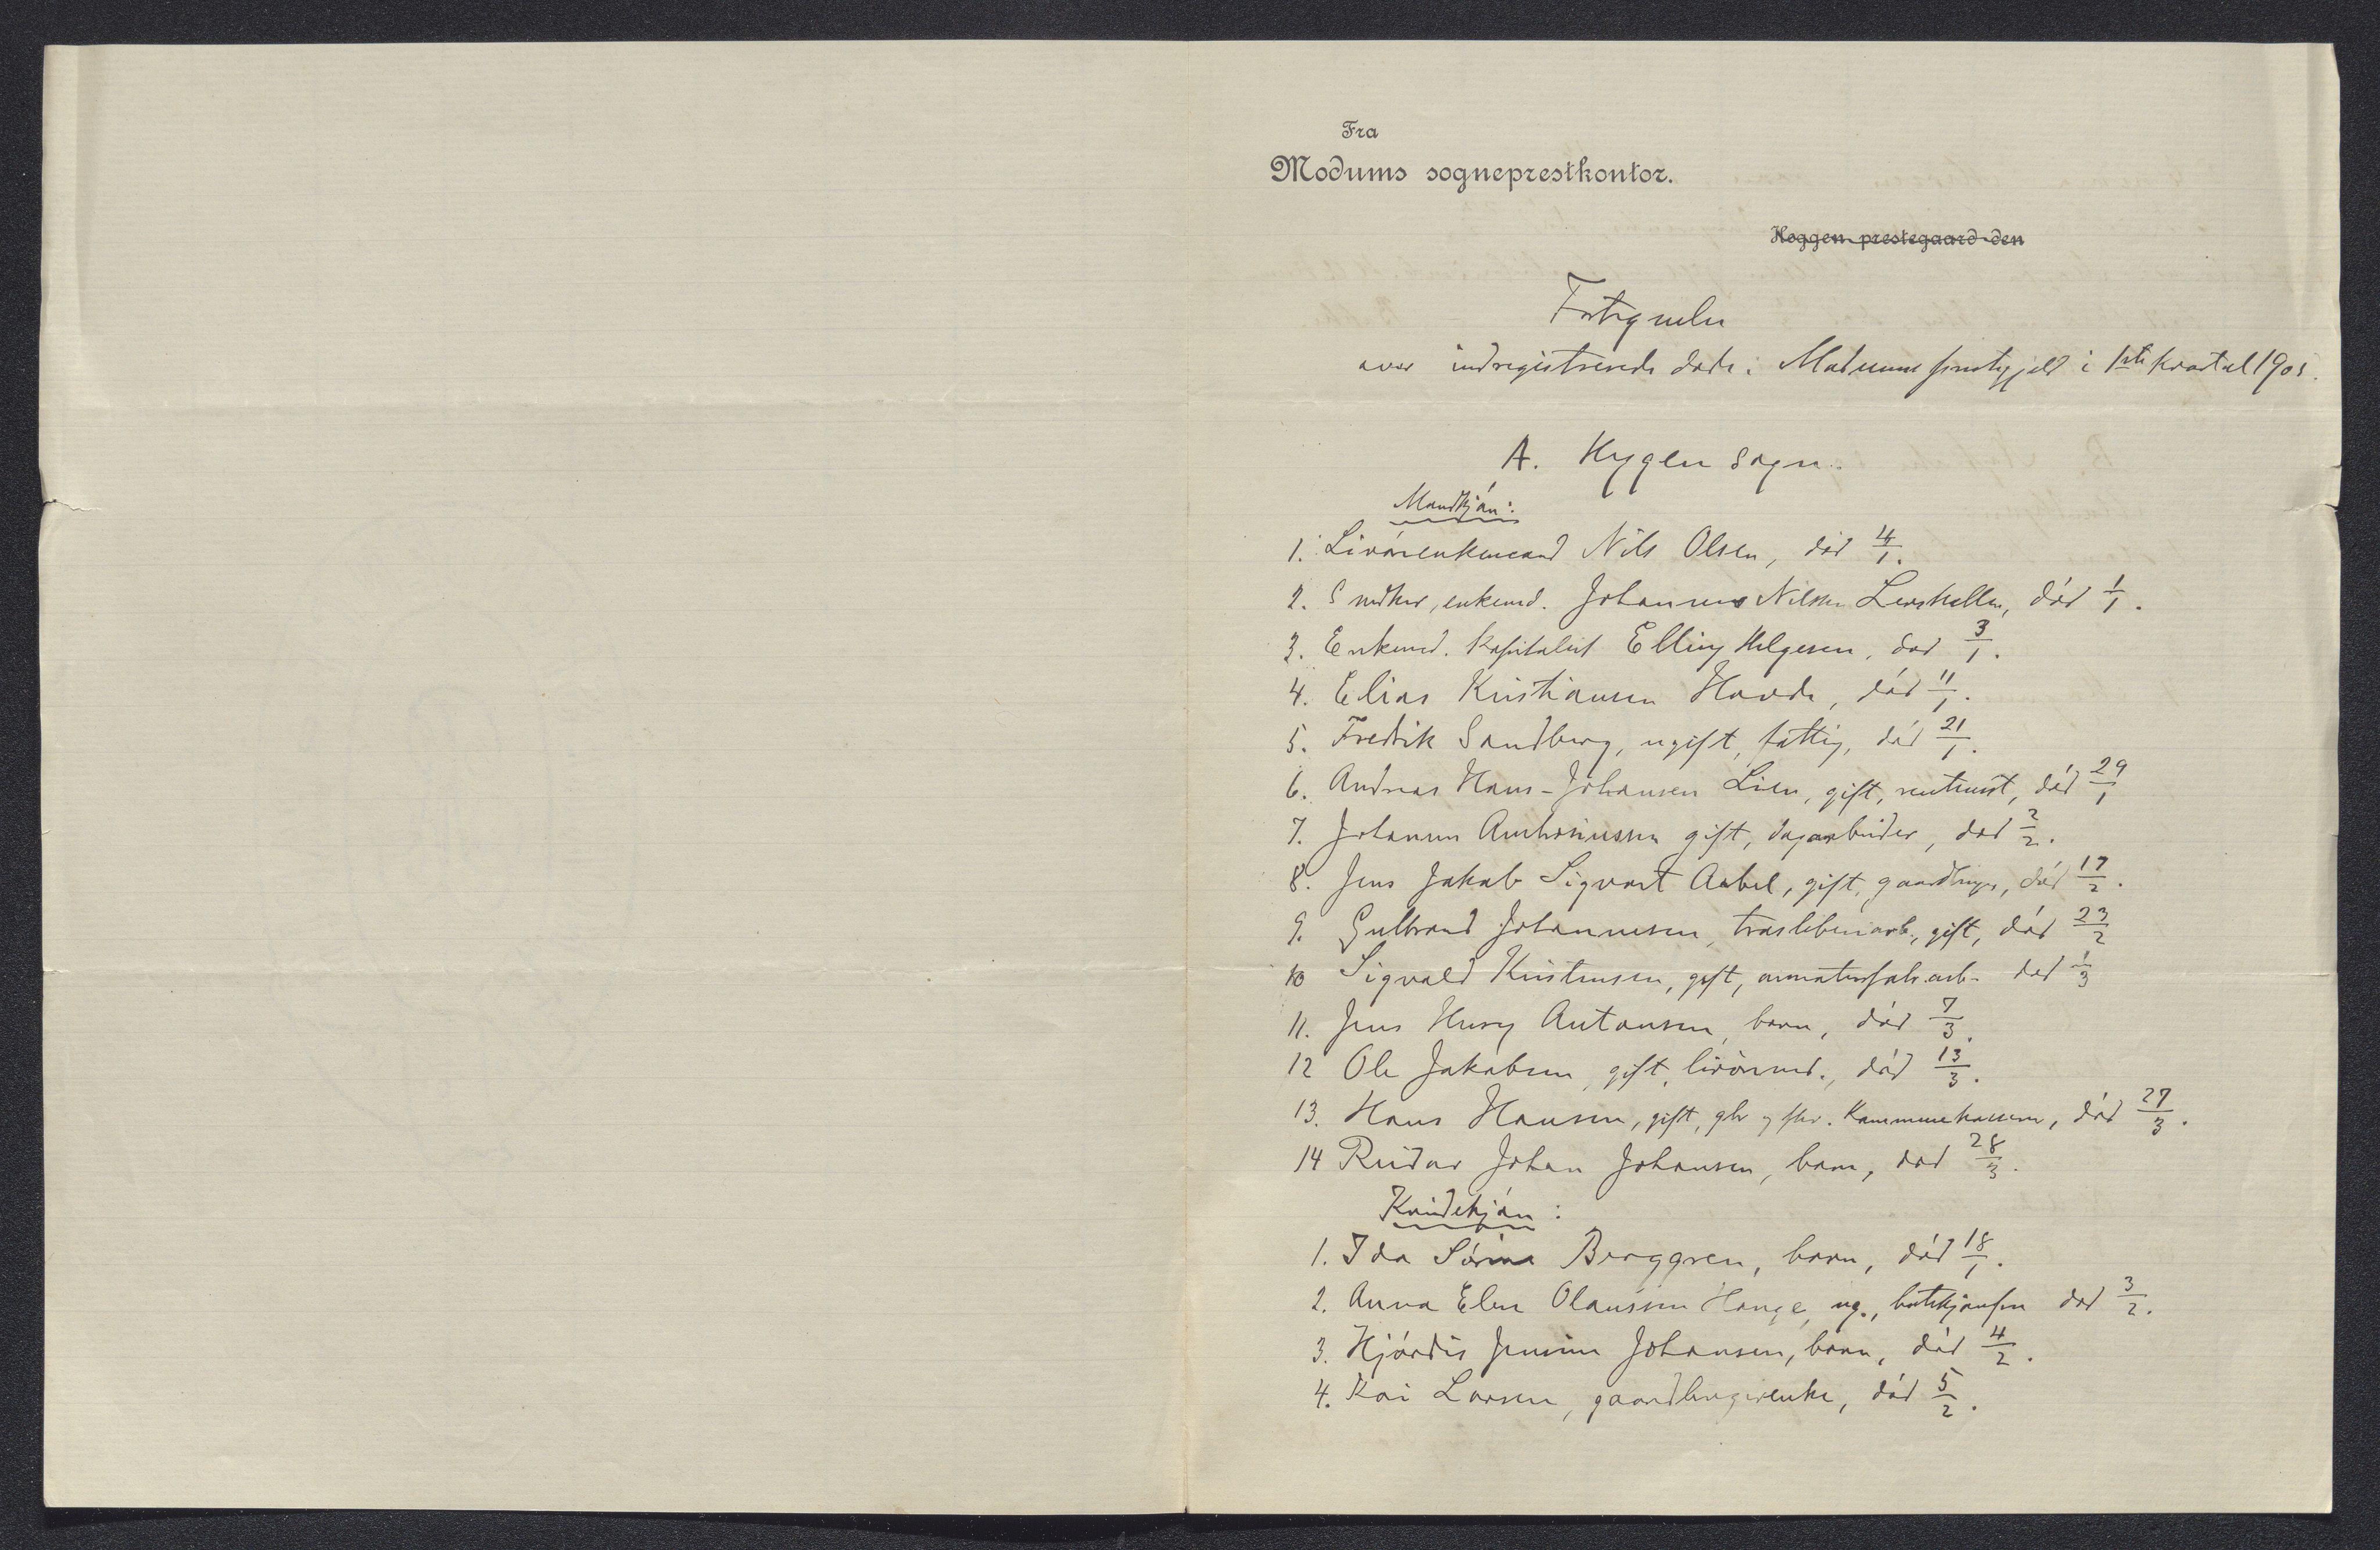 Fra
Modums sogneprestkontor.
Heggen prestegaard den
Fortegnelse
over indregistrerede døde i Modums prestegjeld i 1ste kvartal 1905.
A. Hygen sogn.
Mandkjøn:
1. Livørenkemand Nils Olsen, død 4/1.
2. Snedker, enkemd. Johannes Nilsen, død 1/1.
3. Enkemd. kapitalist Elling Helgesen, død 3/1.
4. Elias Kristiansen Hovde, død 11/1.
5. Fredrik Sandberg, ugift, fattig, død 21/1.
6. Andreas Hans-Johansen Lien, gift, rentenist, død 29/1
7. Johannes Ambrosiussen gift, dagarbeider, død 2/2.
8. Jens Jakob Sigvart Aabel, gift, gaardbruger, død 17/2.
9. Gulbrand Johannesen, træsliberiarb., gift, død 23/2
10 Sigvald Kristensen, gift, armaturfabr.arb. død 1/3
11. Jens Henry Antonsen, barn, død 7/3.
12 Ole Jakobsen, gift, livørmd., død 13/3.
13. Hans Hansen, gift, gbr og fhv. kommunekasserer, død 27/3.
14 Reidar Johan Johansen, barn, død 28/3.
Kvindekjøn:
1. Ida Sørine Berggren, barn, død 18/1.
2. Anna Elen Olaussen Hauge, ug., butikjomfru død 3/2.
3. Hjørdis Jensine Johansen, barn, død 4/2.
4. Kari Larsen, gaardbrugerenke, død 5/2.